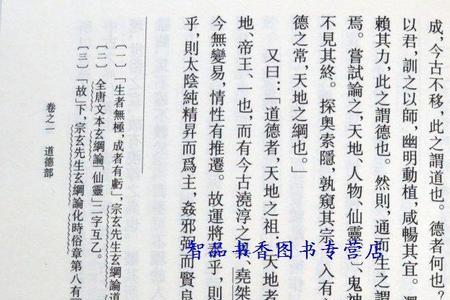 成，今古不移，此之謂道也。德者何也？
以君，訓之以師，幽明動植，咸暢其宜。
賴其力，此之謂德也。然則，通而生之謂
焉。嘗試論之，天地、人物、仙靈、鬼神
不見其終。探奧索隱，孰窺其宗？入有
德之常，天地之綱也。」
又曰：「道德者，天地之祖，天地者
地、帝王，一也，而有今古澆淳之 堯桀
今無變易，情性有推遷。故運將 乎，則
乎，則太陰純精昇而爲主，姦邪弼而賢良
〔一〕「生者無極，成者有虧」，宗玄先生玄綱論道
〔二〕全唐文本玄綱論「仙靈」二字互乙。
〔三〕「故」下，宗玄先生玄綱論化時俗章第八有
卷之一 道德部
智品书香图书专营店